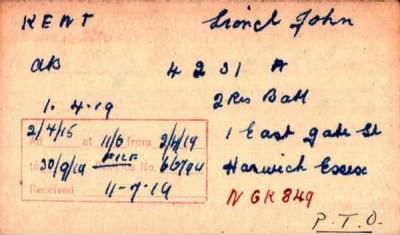 KENT Lionel John
AB 4231 A
1. 4. 19 2 Res Batt
2/4/15 at 11/6 from 2/4/19 1 East gate St
to 30/9/19 FILE No. Harwich Essex
Received 11-7-19 N GK 849
P.T.O.